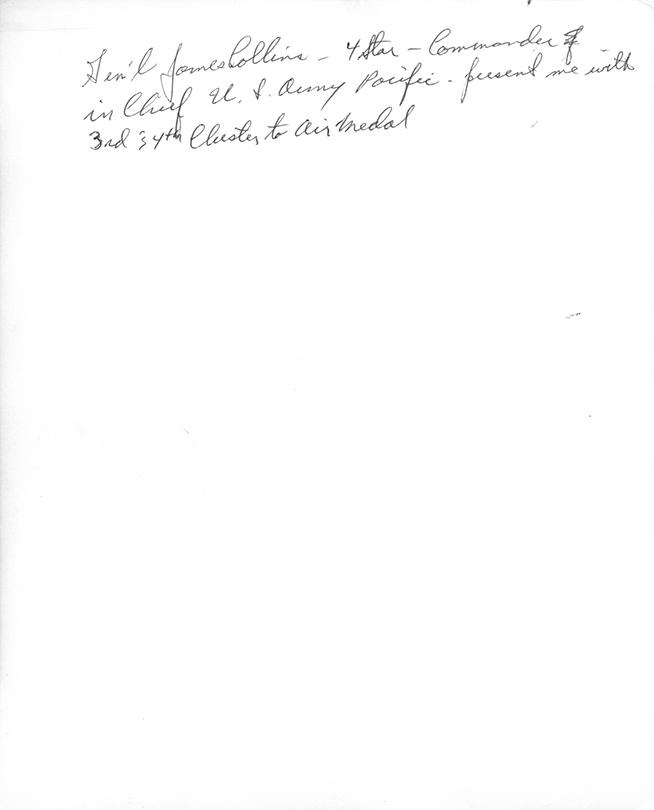 Gen'l James Collins – 4 Star – Commander
in Chief U. S. Army Pacific - present me with
3rd & 4th Cluster to Air Medal